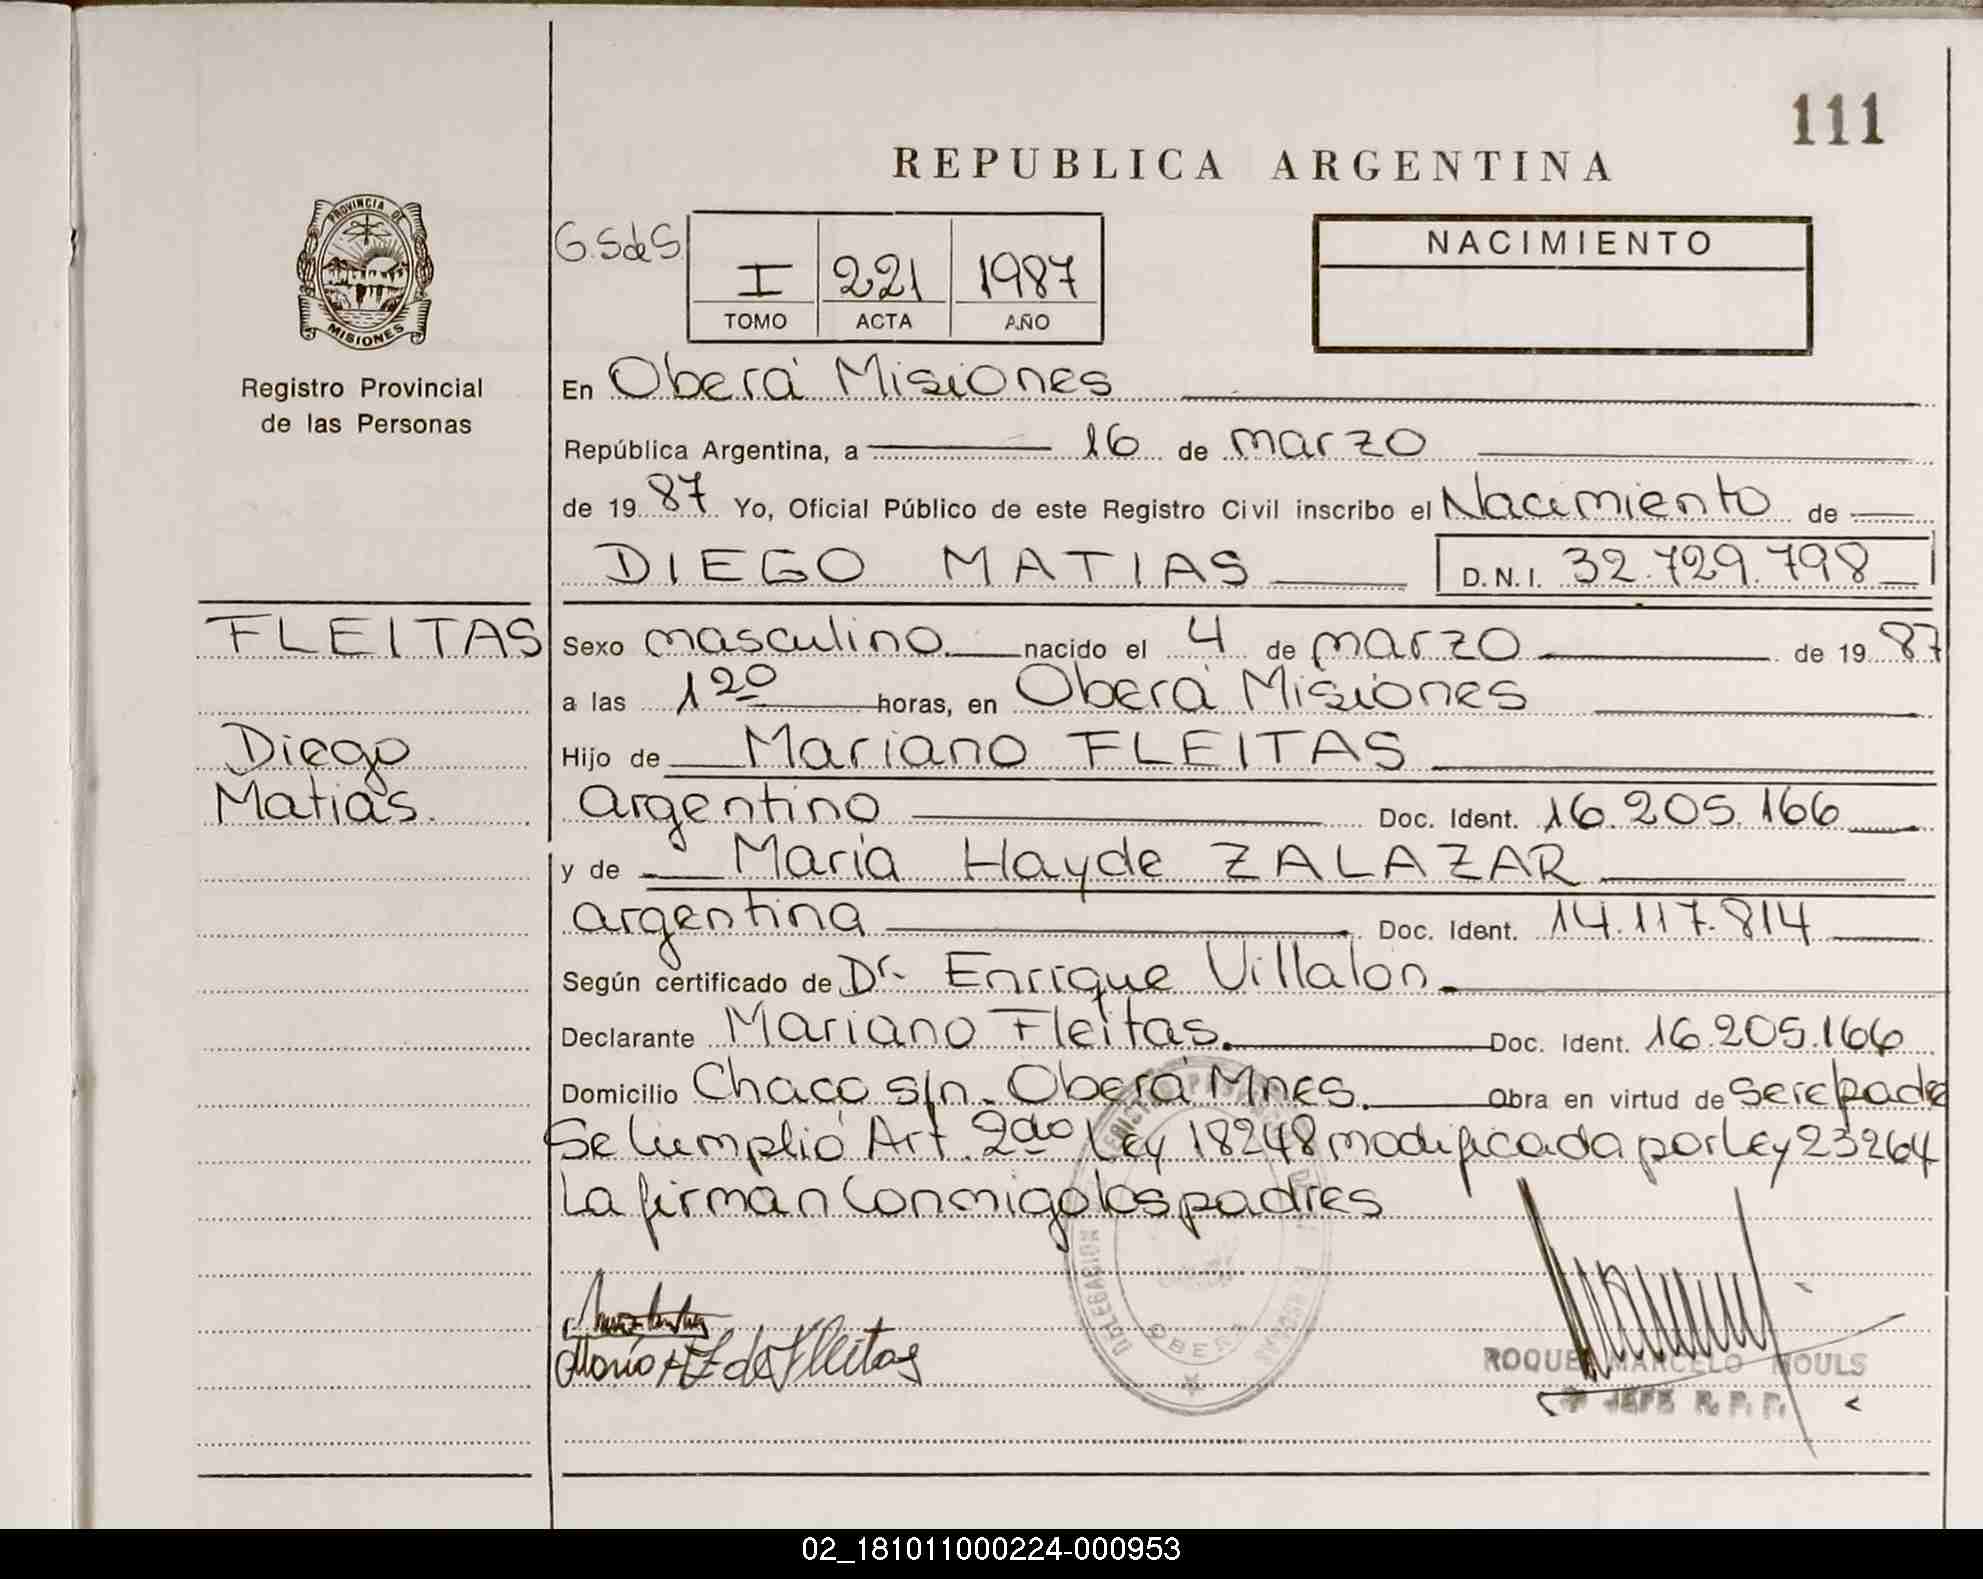 111
REPUBLICA ARGENTINA
PROVINCIA DE
MISIONES
Registro Provincial
de las Personas
G.SdeS
I 221 1987
TOMO ACTA AÑO
NACIMIENTO
En Oberá Misiones
República Argentina, a 16 de marzo
de 1987 Yo, Oficial Público de este Registro Civil inscribo el Nacimiento de
DIEGO MATIAS D.N.I. 32.729.798
FLEITAS
Diego
Matias.
Sexo masculino nacido el 4 de marzo de 1987
a las 1 20 horas, en Oberá Misiones
Hijo de Mariano FLEITAS
argentino Doc. Ident. 16.205.166
y de María Hayde ZALAZAR
argentina Doc. Ident. 14.117.814
Según certificado de Dr. Enrique Villalón
Declarante Mariano Fleitas. Doc. Ident. 16.205.166
Domicilio Chaco s/n. Oberá Mnes. Obra en virtud de ser el padre
Se Cumplió Art. 2do Ley 18248 modificada por Ley 23264
La firman Conmigo los padres
DELEGACION
OBERA
María H Z de Fleitas
ROQUE MARCELO MOULS
JEFE R. P. P.
02_181011000224-000953